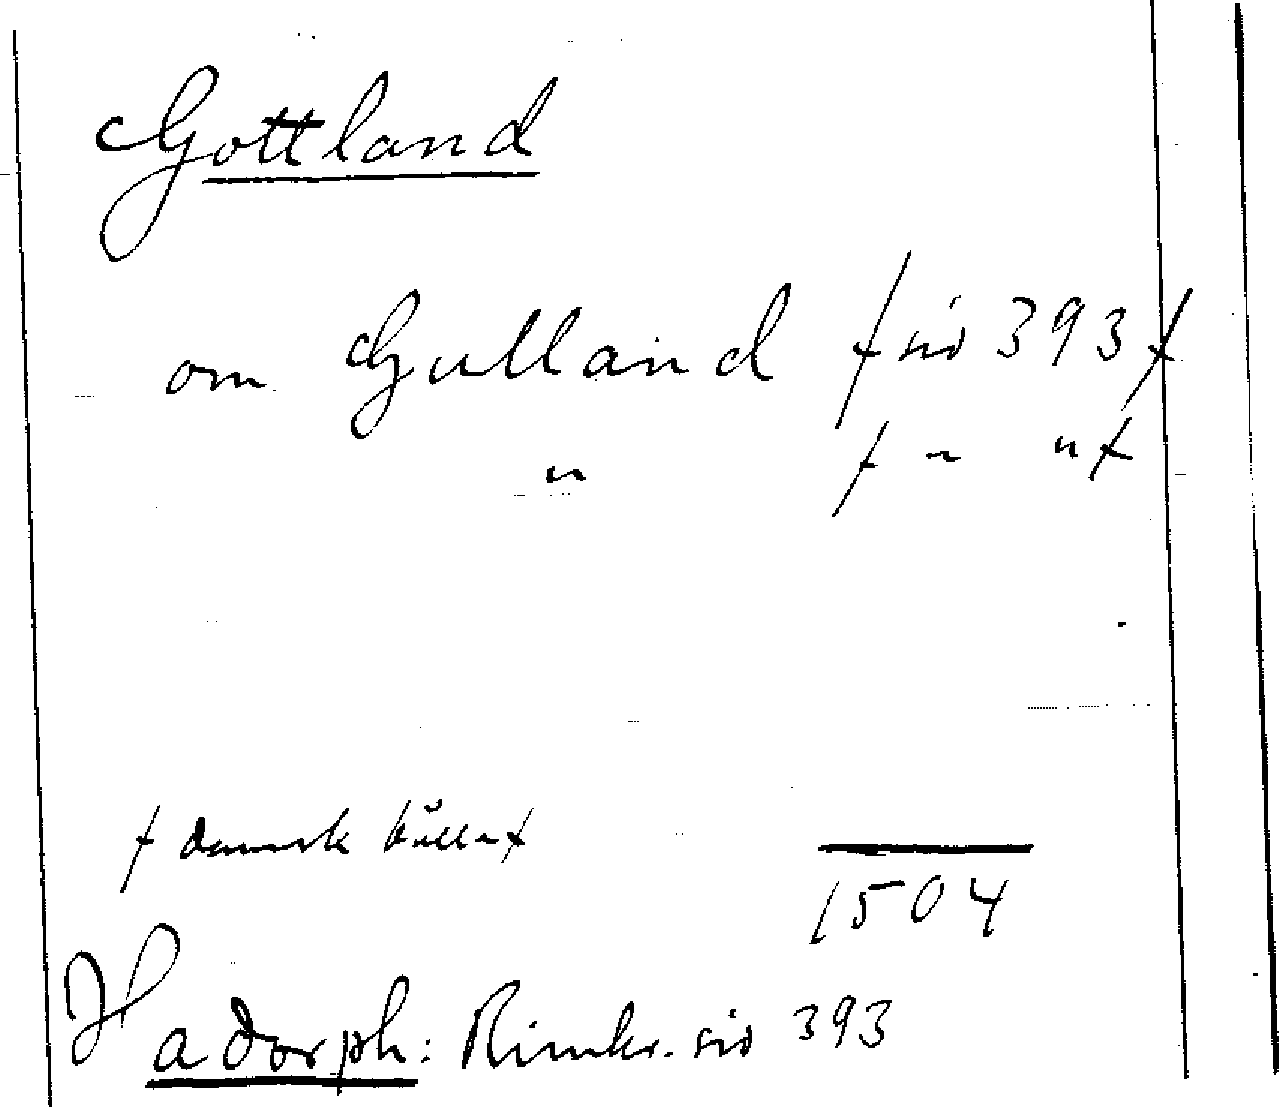 Gottland
om Gulland / sid 393 /
" / " " /
/ dansk källa /
1504
Hadorph: Rimkr. sid 393